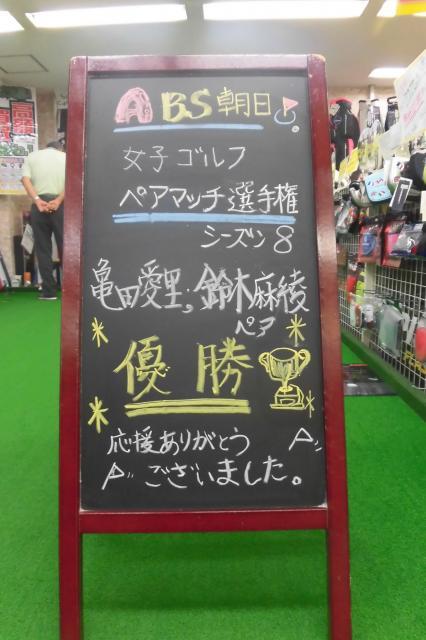 BS朝日
女子ゴルフ
ペアマッチ選手権
シーズン8
亀田愛里;鈴木麻綾
ペア
優勝
応援ありがとう
ございました。